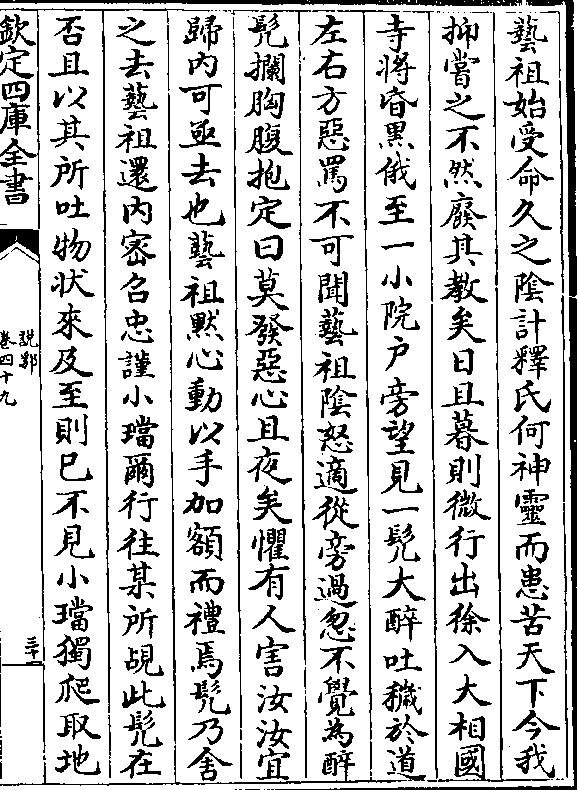 藝祖始受命久之陰計釋氏何神靈而患苦天下今我
抑嘗之不然廢其教矣日且暮則微行出徐入大相國
寺將昏黒俄至一小院戶旁望見一髠大醉吐穢於道
左右方惡罵不可聞藝祖陰怒適從旁過忽不覺為醉
髠攔胸腹抱定曰莫發惡心且夜矣懼有人害汝汝宜
歸内可亟去也藝祖黙心動以手加額而禮焉髠乃舍
之去藝祖還内宻召忠謹小璫爾行往某所覘此髠在
否且以其所吐物狀來及至則已不見小璫獨爬取地
欽定四庫全書
說郛
卷四十九
三十一